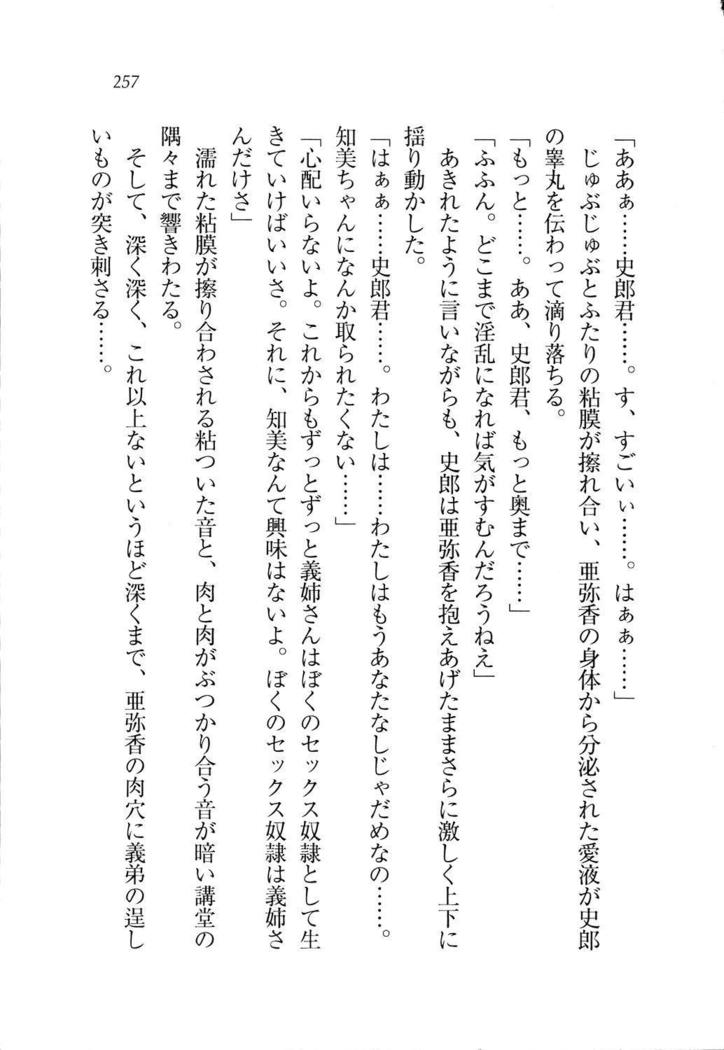 257
「ああぁ……史郎君……。す、すごいぃ……。はぁぁ……」
じゅぶじゅぶとふたりの粘膜が擦れ合い、亜弥香の身体から分泌された愛液が史郎
の睾丸を伝わって滴り落ちる。
「もっと……。ああ、史郎君、もっと奥まで……」
「ふふん。どこまで淫乱になれば気がすむんだろうねえ」
あきれたように言いながらも、史郎は亜弥香を抱えあげたままさらに激しく上下に
揺り動かした。
「はぁぁ……史郎君……。わたしは……わたしはもうあなたなしじゃだめなの……。
知美ちゃんになんか取られたくない……」
「心配いらないよ。これからもずっとずっと義姉さんはぼくのセックス奴隷として生
きていけばいいさ。それに、知美なんて興味はないよ。ぼくのセックス奴隷は義姉さ
んだけさ」
濡れた粘膜が擦り合わされる粘ついた音と、肉と肉がぶつかり合う音が暗い講堂の
隅々まで響きわたる。
そして、深く深く、これ以上ないというほど深くまで、亜弥香の肉穴に義弟の逞し
いものが突き刺さる……。